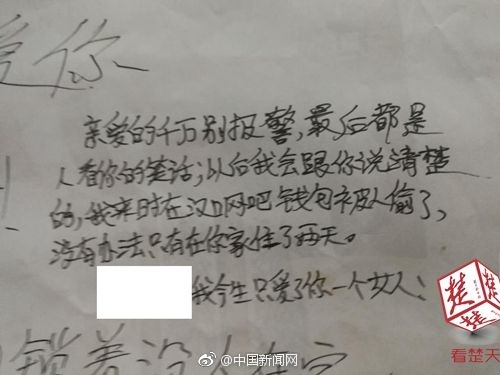 爱你
亲爱的千万别报警,最后都是
人看你的笑话;以后我会跟你说清楚
的,我来时在汉口网吧钱包被人偷了,
没有办法只有在你家住了两天。
我今生只爱了你一个女人;
锁着没
楚
看楚天
@中国新闻网